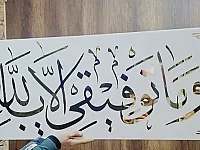 وَمَا تَوْفِيْقِيْ اِلَّا بِاللّٰهِ